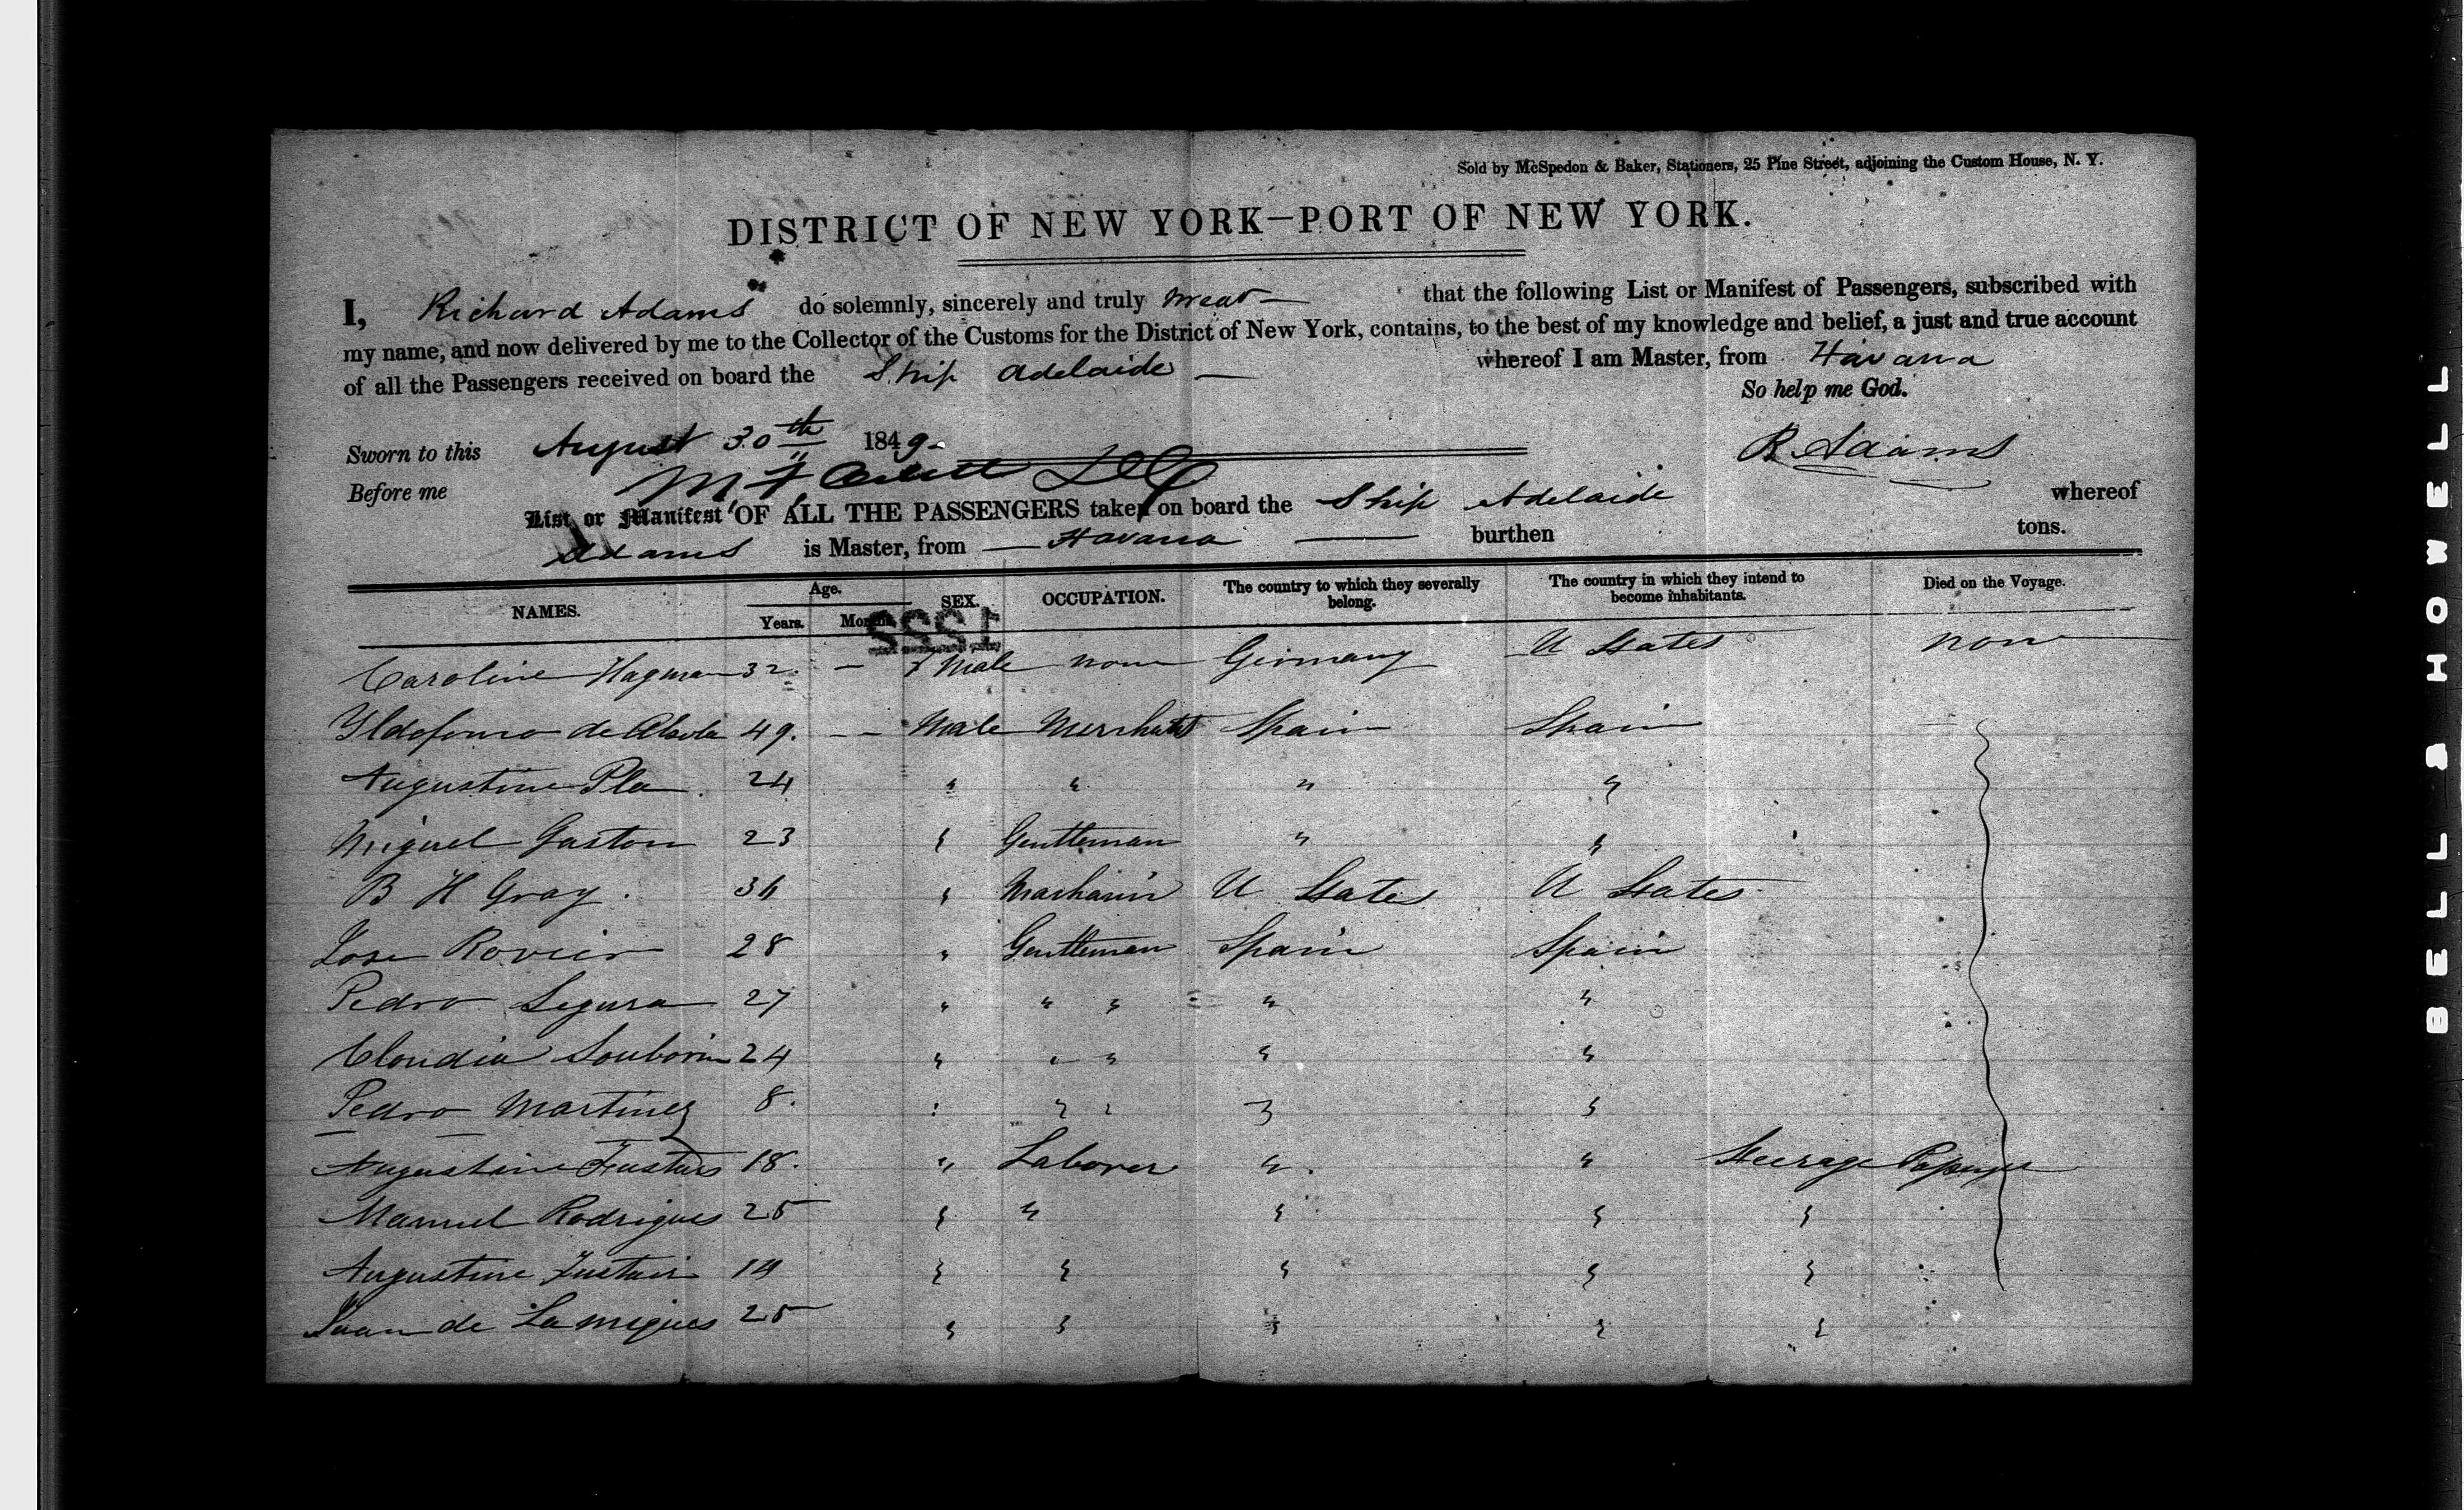 Sold by McSpedon & Baker, Stationers, 25 Pine Street, adjoining the Custom House, N. Y.
DISTRICT OF NEW YORK—PORT OF NEW YORK.
I, Richard Adams do solemnly, sincerely and truly swear — that the following List or Manifest of Passengers, subscribed with
my name, and now delivered by me to the Collector of the Customs for the District of New York, contains, to the best of my knowledge and belief, a just and true account
of all the Passengers received on board the Ship Adelaide — whereof I am Master, from Havana
So help me God.
Sworn to this August 30th 1849.
R Adams
Before me
List or Manifest OF ALL THE PASSENGERS taken on board the Ship Adelaide whereof
Adams is Master, from — Havana — burthen tons.
NAMES. Age. Years. Months. SEX. OCCUPATION. The country to which they severally belong. The country in which they intend to become inhabitants. Died on the Voyage.
1552
Caroline Hagman 32. — F Male none Germany U States none
Yldefonso de 49. — — Male Merchant Spain Spain
Augustine Pla 24 " " " "
Miguel Gaston 23 " Gentleman " "
B H Gray. 36 " U States U States
Jose Rovier 28 " Gentleman Spain Spain
Pedro Segura 27 " " " " "
Claudia 24 " " " " "
Pedro Martinez 8. " " " " "
Augustine 18. " Laborer " " Steerage Passenger
Manuel Rodrigues 25 " " " " "
Augustine 14 " " " " "
Juan de 25 " " " " "
BELL & HOWELL